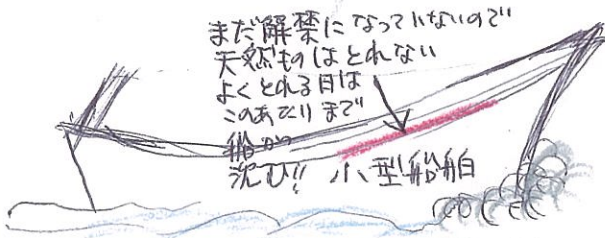 まだ解禁になっていないので
天然ものはとれない
よくとれる日は
このあたりまで
船が
沈む!!
小型船舶